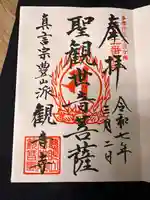 奉拝
令和七年
三月二日
聖観世音菩薩
真言宗豊山派
観音寺